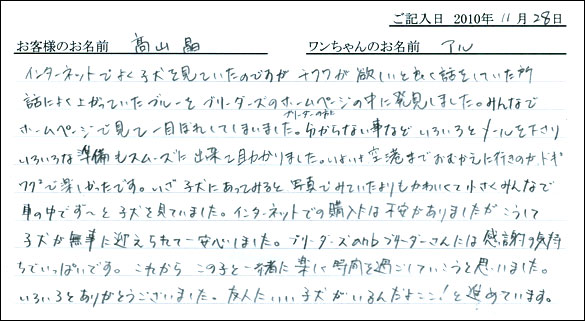 ご記入日 2010年 11月 28日
お客様のお名前 髙山 晶 ワンちゃんのお名前 アル
インターネットでよく子犬を見ていたのですが チワワが欲しいと良く話をしていた所
話によく上がっていたブルーを ブリーダーズのホームページの中に発見しました。みんなで
ホームページで見て一目ぼれしてしまいました。ブリーダーの方も分からない事など いろいろと メールを下さり
いろいろな準備もスムーズに出来て助かりました。いよいよ空港までおむかえに行きのか ドキ
ワクで楽しかったです。いざ子犬にあってみると 写真でみていたよりもかわいくて小さくみんなで
車の中でず〜と子犬を見ていました。インターネットでの購入は不安がありましたが こうして
子犬が無事に迎えられて一安心しました。ブリーダーズのnbブリーダーさんには感謝の気持
ちでいっぱいです。これから この子と一緒に楽しく時間を過ごしていこうと思いました。
いろいろとありがとうございました。友人にいい子犬がいるんだよここ！と進めています。